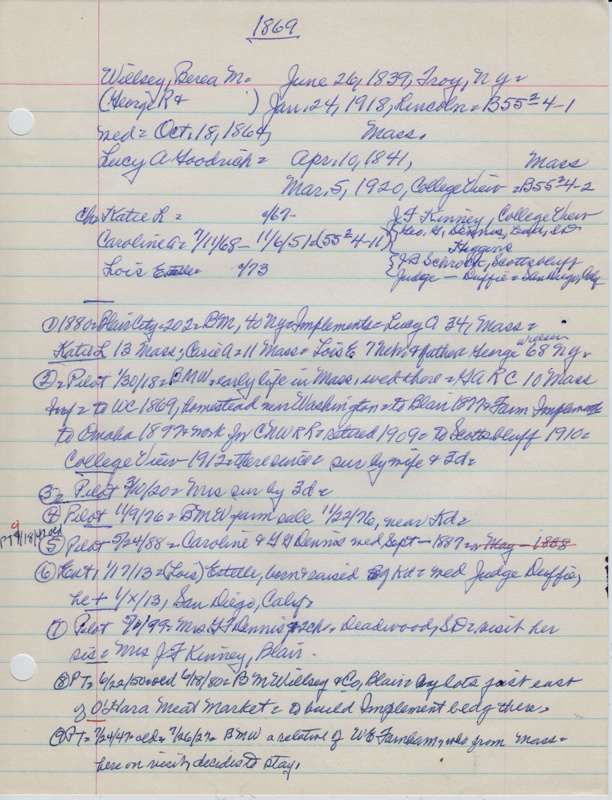 1869
Willsey, Berea M. = June 26, 1839, Troy, N.Y. =
(George R + ) Jan. 24, 1918, Lincoln = B55²4-1
wed = Oct. 18, 1864, Mass.
Lucy A Goodrich = Apr. 10, 1841, Mass
Mar. 5, 1920, College View = B55²4-2
ch = Katie L = c/67- J F Kinney, College View
Caroline A = 7/11/68 - 11/6/51 (55²4-11) Geo. G. Dennis,
Higgins
Lois Estelle c/73 J B Schrock, Scottsbluff
Judge — Duffie = San Diego, Caly
① 1880 = Blair City = 202 = BM, 40 NY = Implements = Lucy A 34, Mass =
Katie L 13 Mass; Carie A = 11 Mass = Lois E 7 Neb = father George Willsey 68 N.Y.
② = Pilot 1/30/18 = BMW = early life in Mass, wed there = GAR C 10 Mass
Inf = to WC 1869, homestead near Washington = to Blair 1877 = Farm Implements
to Omaha 1897 = work for CNWRR = retired 1909 = to Scottsbluff 1910 =
College View - 1912 = there since = sur by wife & 3d =
③ = Pilot 3/10/20 = Mrs sur by 3d =
④ Pilot 11/9/76 = BMW farm sale 11/22/76, near Kd =
PT 9/18/47 old
⑤ Pilot 5/24/88 = Caroline & G G Dennis wed Sept - 1887 = or May - 1888
⑥ Ent, 1/17/13 = (Lois) Estelle, born & raised Kd = wed Judge Duffie,
he + 1/x/13, San Diego, Caly =
⑦ Pilot 5/4/99 = Mrs G G Dennis sch = Deadwood, SD = visit her
sis = Mrs J F Kinney, Blair.
⑧ PT = 6/22/50 = old 6/18/80 = B M Willsey & Co, Blair = buy lots just east
of O'Hara Meat Market = to build Implement bldg there =
⑨ PT = 7/24/47 = old = 7/26/77 = BMW a relative of W E Farnham, who from Mass =
here on visit, decides to stay.